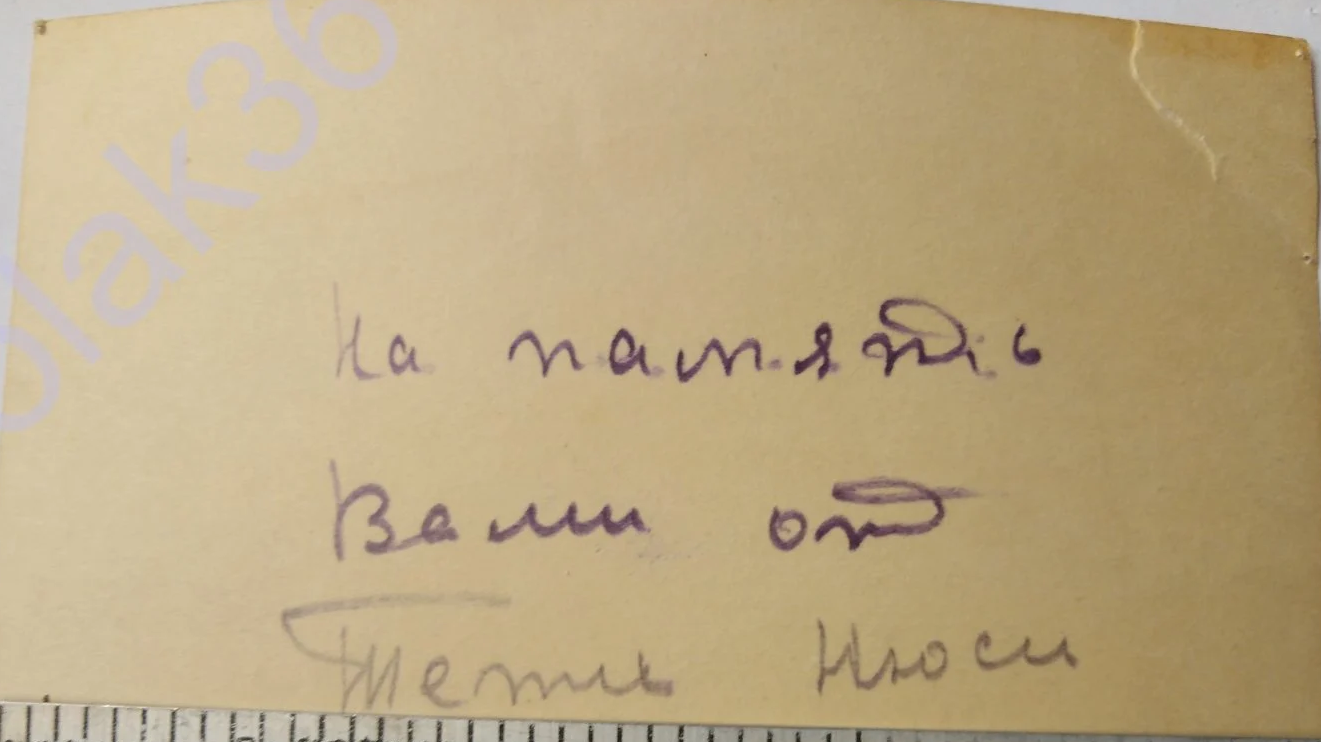 На память
Вали от
Тети Нюси
olak36